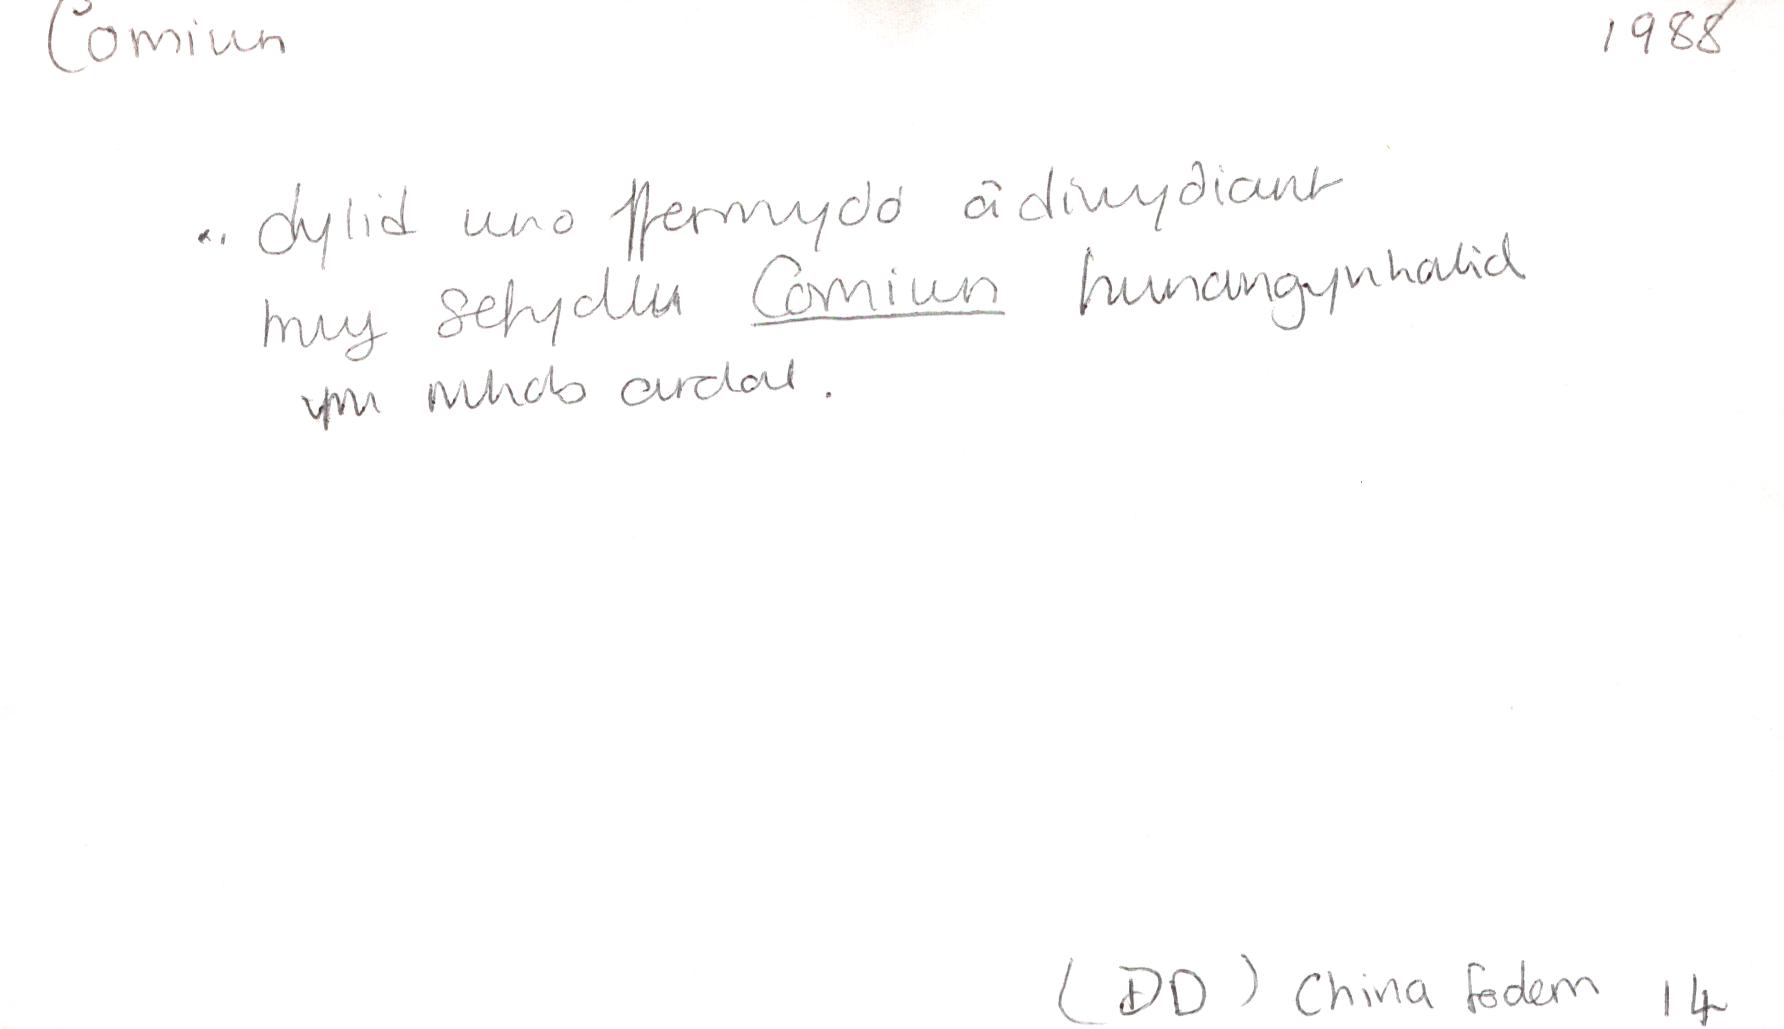 Comiwn 1988
.. dylid uno ffermydd â diwydiant
trwy sefydlu Comiwn hunangynhalid
ym mhob ardal.
(DD) China fodern 14